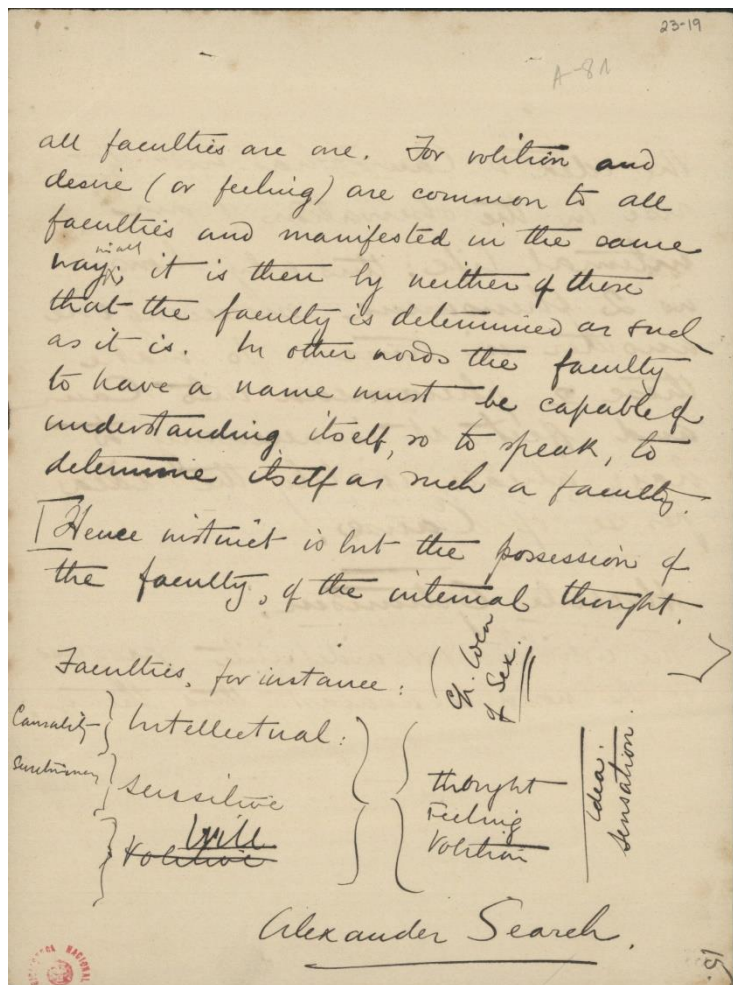 23-19
A-81
all faculties are one. For volition and
desire (or feeling) are common to all
faculties and manifested in the same
in all
way; it is then by neither of these
that the faculty is determined as such
as it is. In other words the faculty
to have a name must be capable of
understanding itself, so to speak, to
determine itself as such a faculty.
Hence instinct is but the possession of
the faculty, of the internal thought.
Faculties, for instance:
Ch. Idea
of Sex.
Causality
Intellectual:
sensitive
Will
Volitive
thought
Feeling
Volition
Idea.
Sensation.
Alexander Search.
BIBLIOTECA NACIONAL